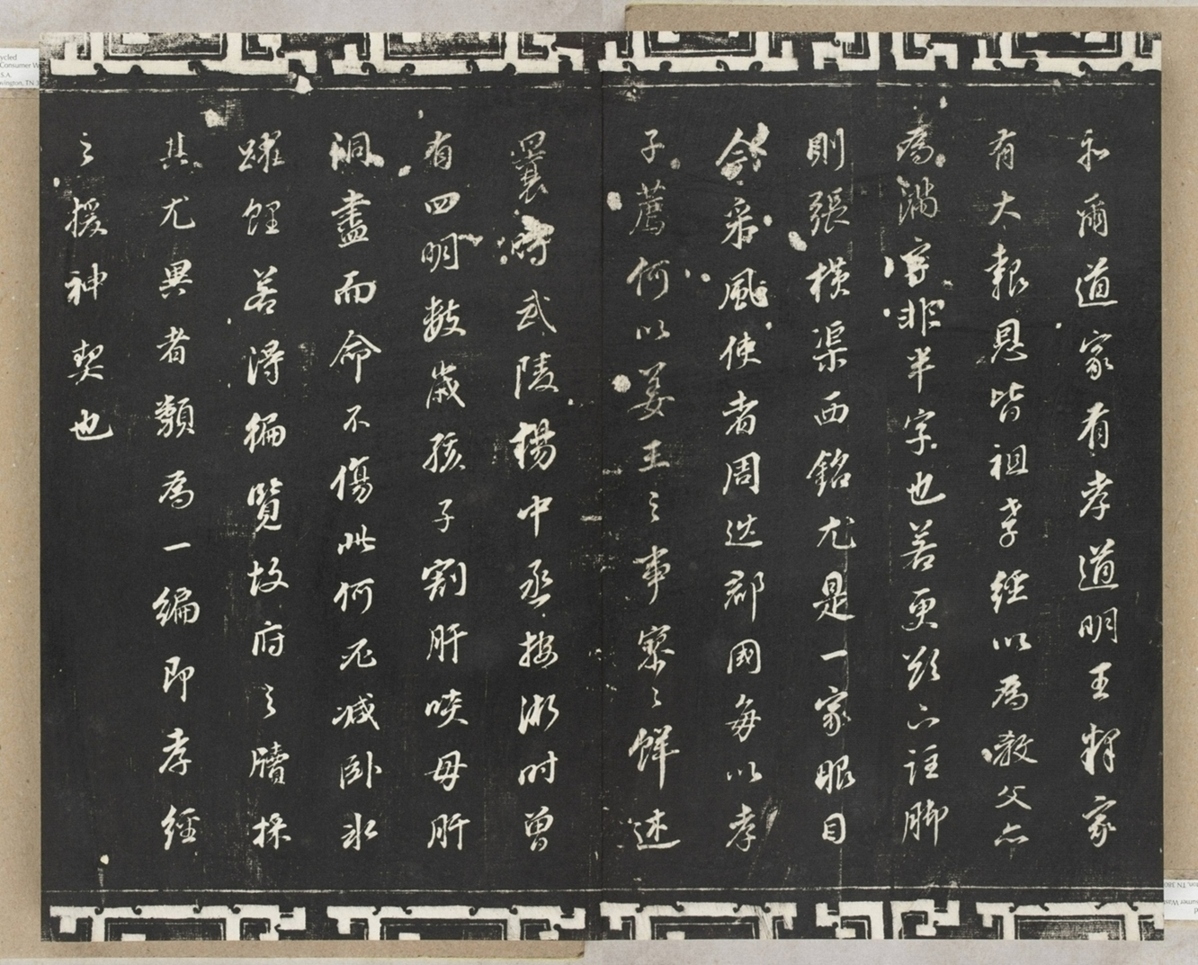 和爾道家有孝道明王釋家
有大報恩皆祖孝經以為教父亦
為滿字非半字也若更欲下註脚
則張橫渠西銘尤是一家眼目
今采風使者周迻郡國每以孝
子薦何以姜王之事寥寥鮮述
曩時武陵楊中丞按浙時曾
有四明數歲孩子割肝啖母肝
洞盡而命不傷此何死減臥冰
躍鯉若得徧覽故府之牘採
其尤異者類為一編即孝經
之援神契也
ycled
Consumer W
S.A.